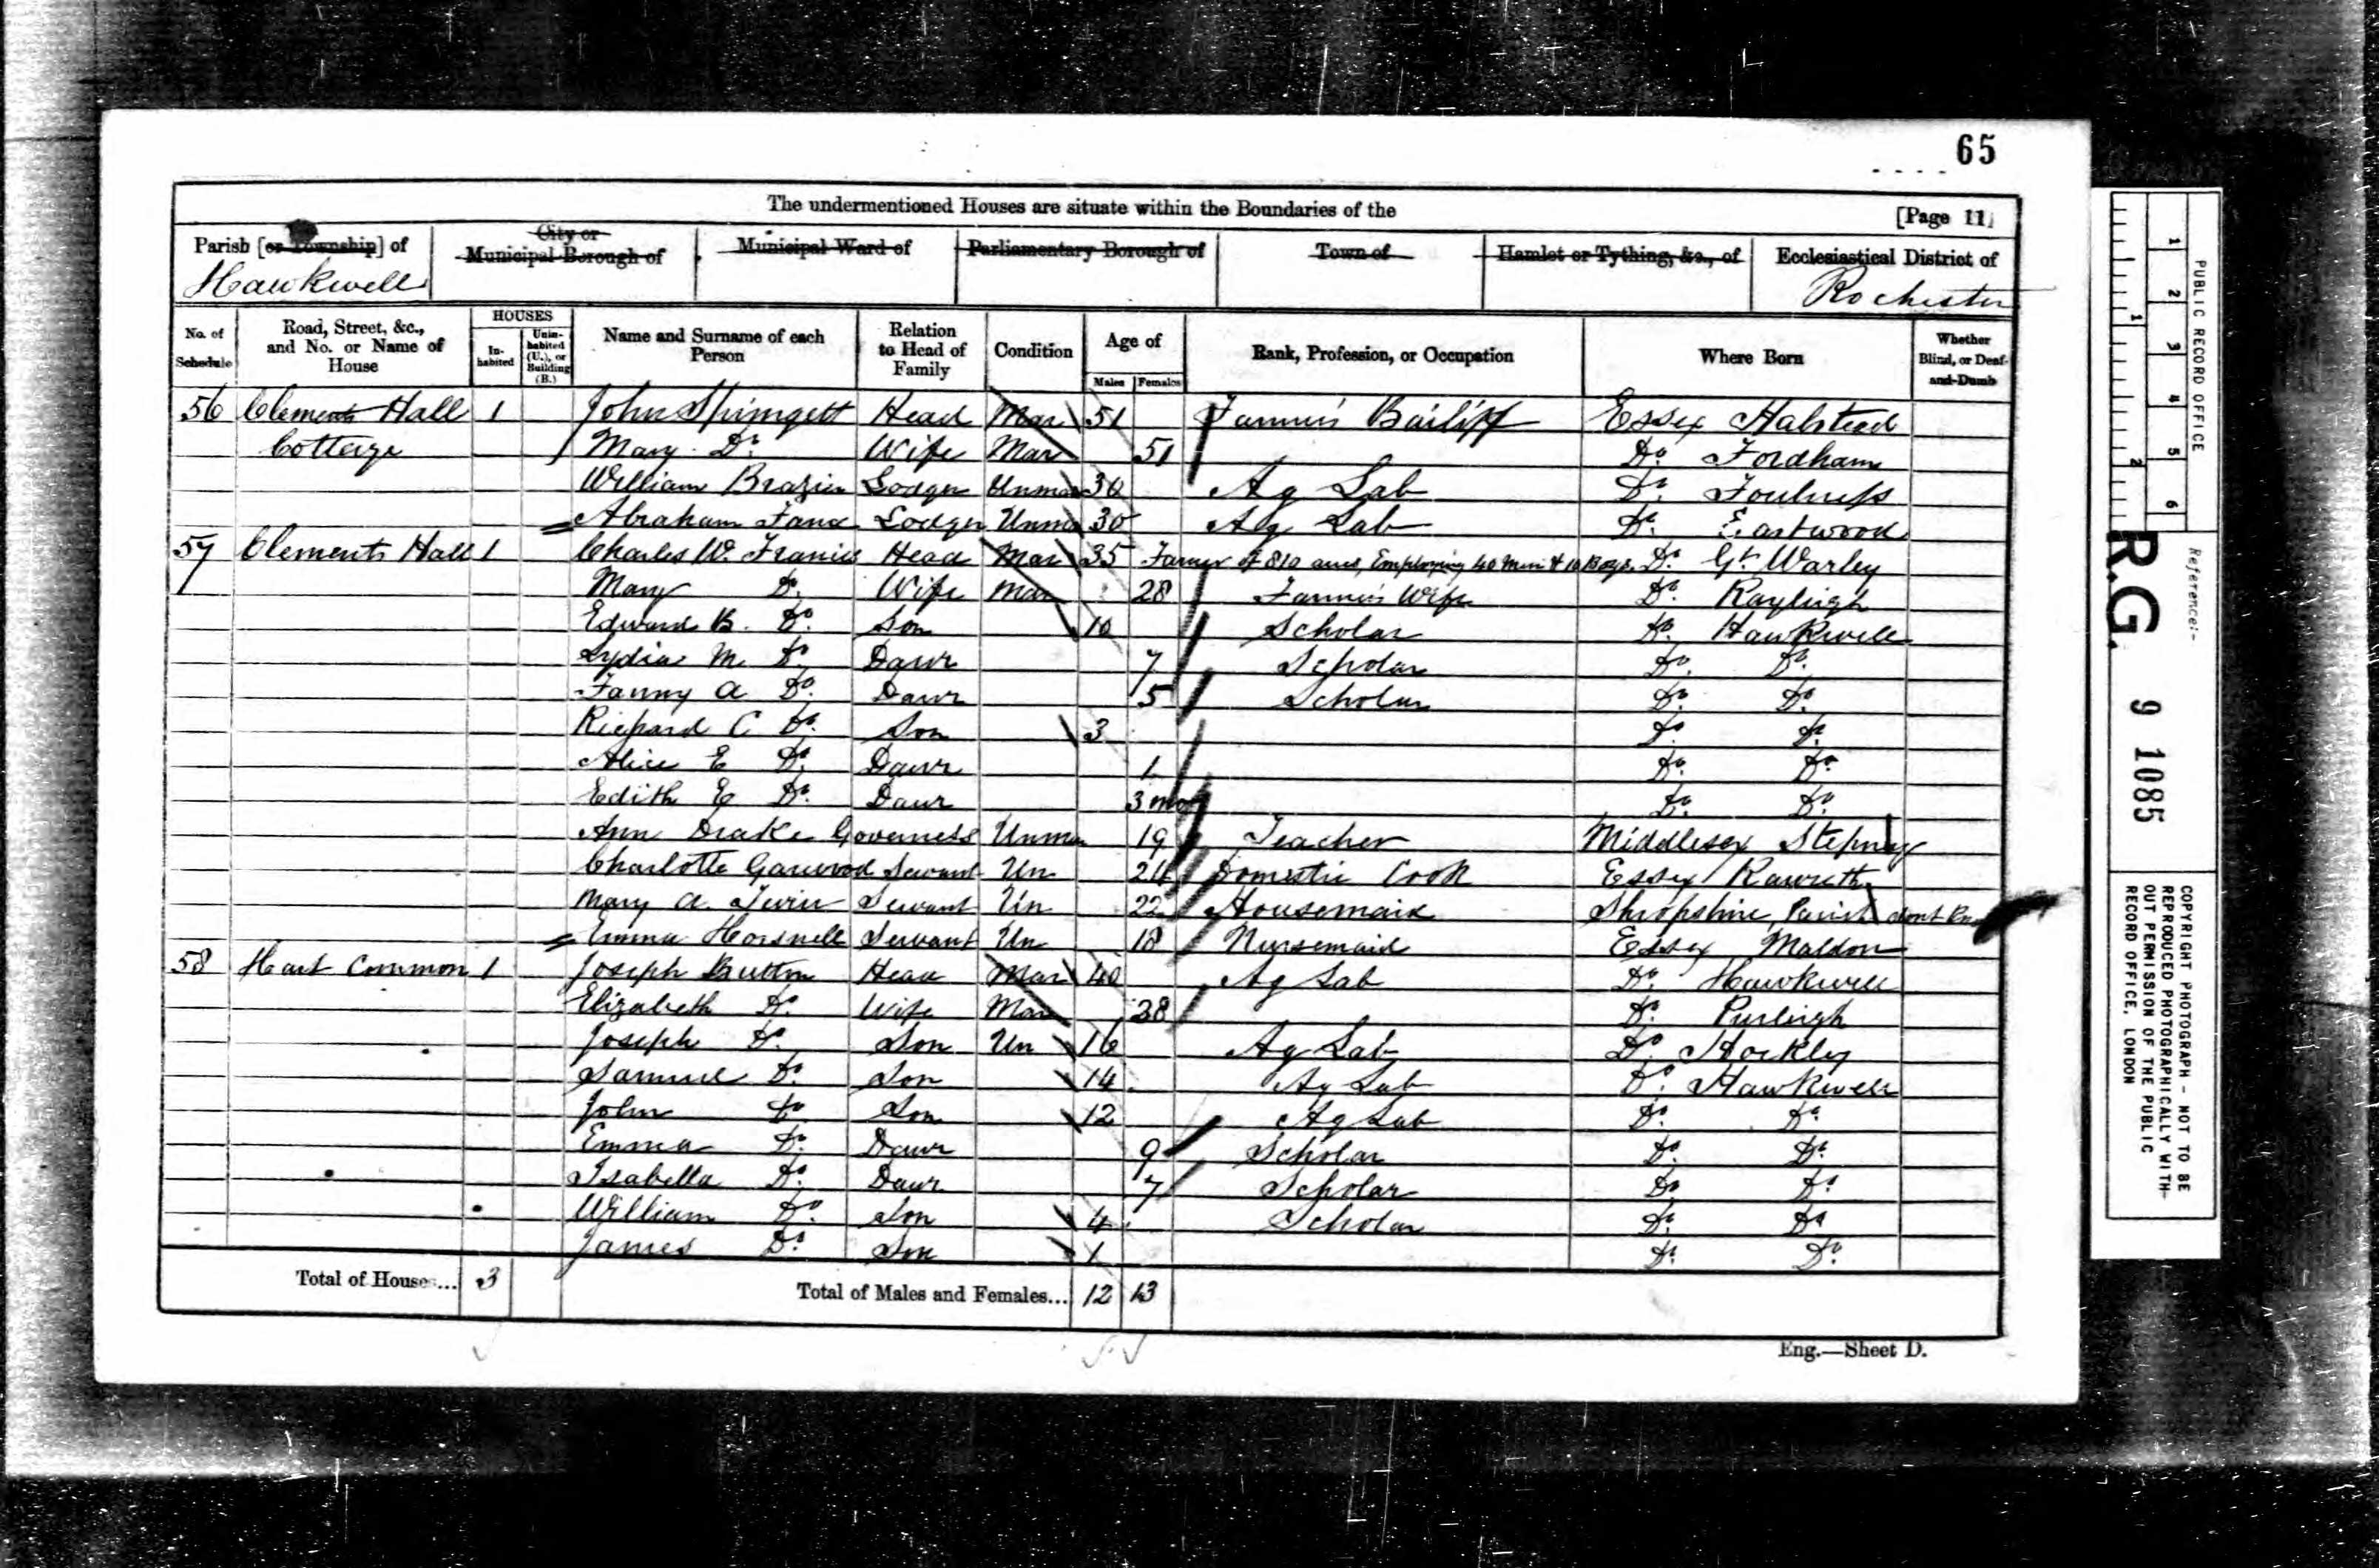 65
The undermentioned Houses are situate within the Boundaries of the
[Page 11]
Parish [or Township] of Hawkwell
City or Municipal Borough of
Municipal Ward of
Parliamentary Borough of
Town of
Hamlet or Tything, &c., of
Ecclesiastical District of Rochester
No. of Schedule
Road, Street, &c., and No. or Name of House
HOUSES
Inhabited
Uninhabited (U.), or Building (B.)
Name and Surname of each Person
Relation to Head of Family
Condition
Age of
Males
Females
Rank, Profession, or Occupation
Where Born
Whether Blind, or Deaf-and-Dumb
56 Clements Hall 1 John Springett Head Mar 51 Farmer's Bailiff Essex Halstead
Cottage Mary Do. Wife Mar 51 Do. Fordham
William Brazier Lodger Unmar Ag Lab Do. Foulness
Abraham Lodger Unmar 30 Ag Lab Do. Eastwood
57 Clements Hall 1 Charles W. Francis Head Mar 35 Farmer of 810 acres, Employing 40 Men & 10 Boys Do. Gt. Warley
Mary Do. Wife Mar 28 Farmer's Wife Do. Rayleigh
Edward B. Do. Son 10 Scholar Do. Hawkwell
Lydia M. Do. Daur 7 Scholar Do. Do.
Fanny A Do. Daur 5 Scholar Do. Do.
Richard C Do. Son 3 Do. Do.
Alice E Do. Daur 1 Do. Do.
Edith E Do. Daur 3 mo Do. Do.
Ann Drake Governess Unmar 19 Teacher Middlesex Stepney
Charlotte Garwood Servant Un 24 Domestic Cook Essex Rawreth
Mary A. Servant Un 22 Housemaid Shropshire, Parish dont Know
Emma Horsnell Servant Un 18 Nursemaid Essex Maldon
58 Hart Common 1 Joseph Button Head Mar 40 Ag Lab Do. Hawkwell
Elizabeth Do. Wife Mar 38 Do. Purleigh
Joseph Do. Son Un 16 Ag Lab Do. Hockley
Samuel Do. Son 14 Ag Lab Do. Hawkwell
John Do Son 12 Ag Lab Do. Do.
Emma Do. Daur 9 Scholar Do. Do.
Isabella Do. Daur 7 Scholar Do Do.
William Do. Son 4 Scholar Do. Do.
James Do. Son 1 Do. Do.
Total of Houses... 3
Total of Males and Females... 12 13
Eng.—Sheet D.
PUBLIC RECORD OFFICE
1 2 3 4 5 6
1 2
Reference:-
R.G. 9 1085
COPYRIGHT PHOTOGRAPH - NOT TO BE
REPRODUCED PHOTOGRAPHICALLY WITH-
OUT PERMISSION OF THE PUBLIC
RECORD OFFICE, LONDON